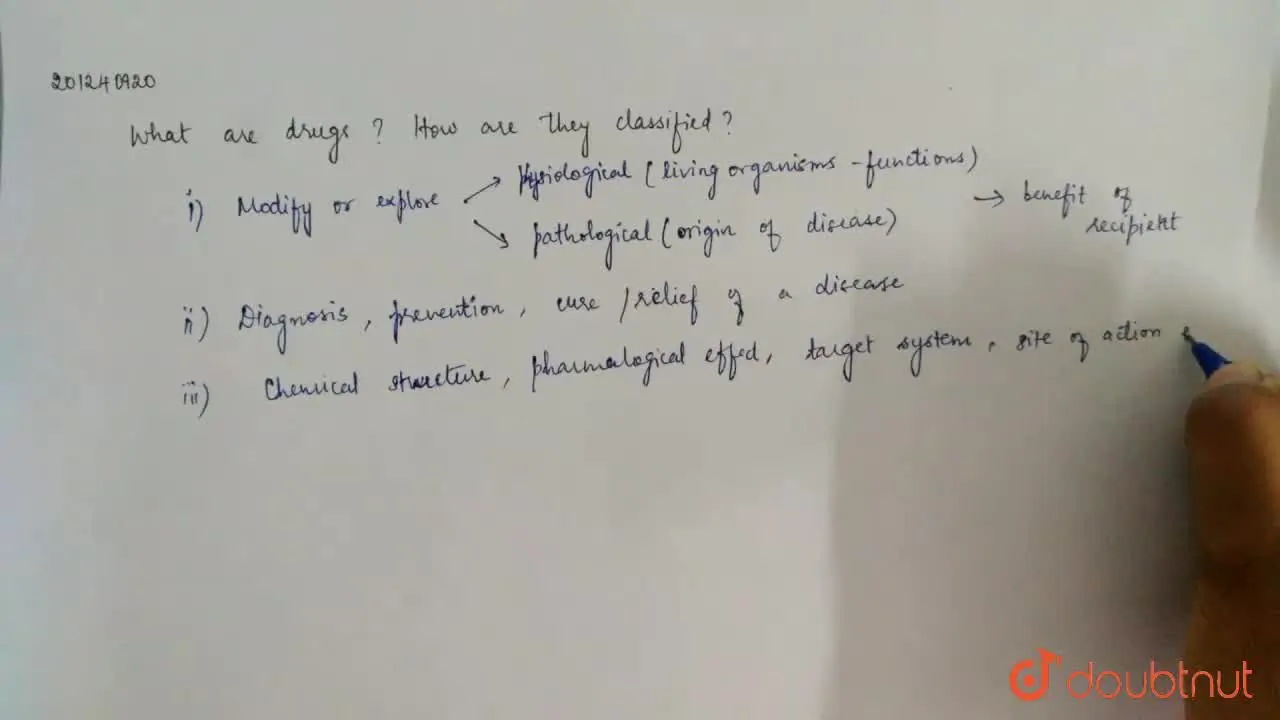 201240920
What are drugs? How are they classified?
i) Modify or explore → physiological (living organisms - functions)
→ pathological (origin of disease)
→ benefit of recipient
ii) Diagnosis, prevention, cure / relief of a disease
iii) Chemical structure, pharmalogical effect, target system, site of action
doubtnut